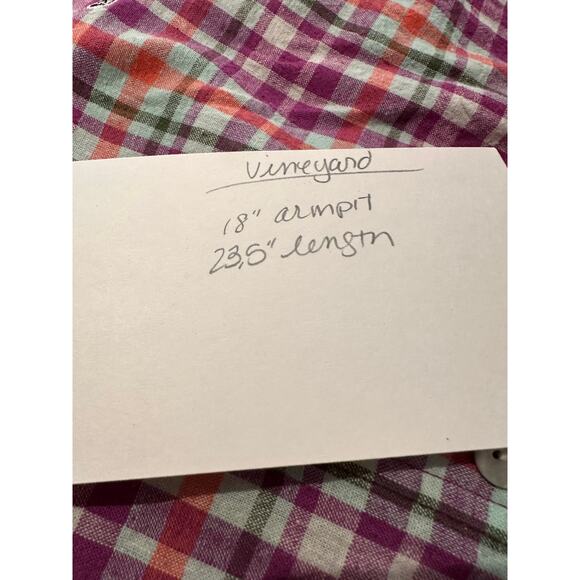 Vineyard
18" armpit
23,5" length